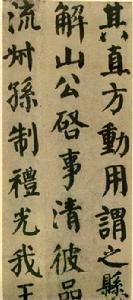 其直方動用謂之縣
解山公啓事清彼品
流叔孫制禮光我王